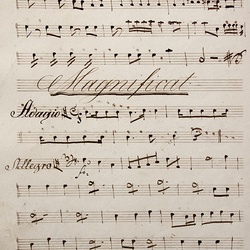 Magnificat
Adagio
Allegro